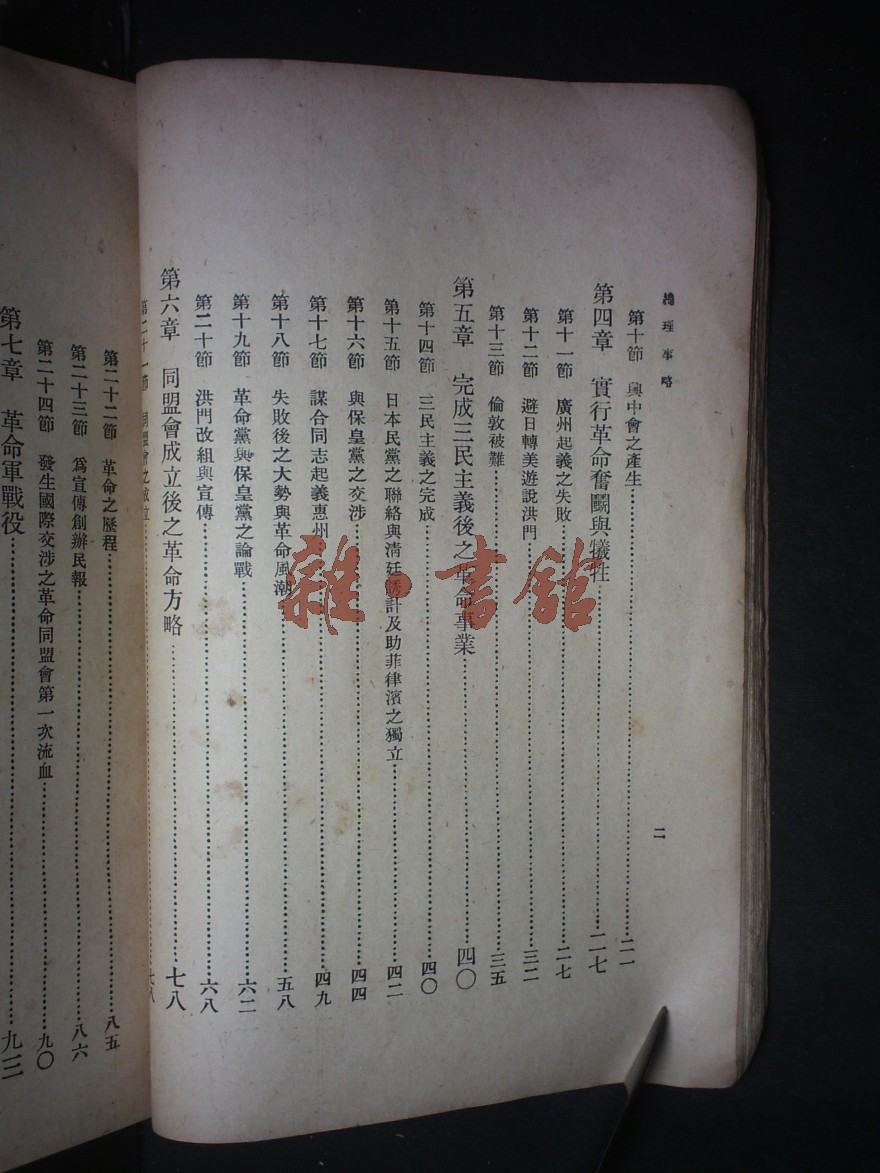 總理事略
二
第十節 興中會之產生……二一
第四章 實行革命奮鬭與犧牲……二七
第十一節 廣州起義之失敗……二七
第十二節 避日轉美遊說洪門……三二
第十三節 倫敦被難……三五
第五章 完成三民主義後之革命事業……四〇
第十四節 三民主義之完成……四〇
第十五節 日本民黨之聯絡與清廷誘計及助菲律濱之獨立……四二
第十六節 與保皇黨之交涉……四四
第十七節 謀合同志起義惠州……四九
第十八節 失敗後之大勢與革命風潮……五八
第十九節 革命黨與保皇黨之論戰……六二
第二十節 洪門改組與宣傳……六八
第六章 同盟會成立後之革命方略……七八
第二十一節 同盟會之成立……七八
第二十二節 革命之歷程……八五
第二十三節 爲宣傳創辦民報……八六
第二十四節 發生國際交涉之革命同盟會第一次流血……九〇
第七章 革命軍戰役……九三
雜·書館